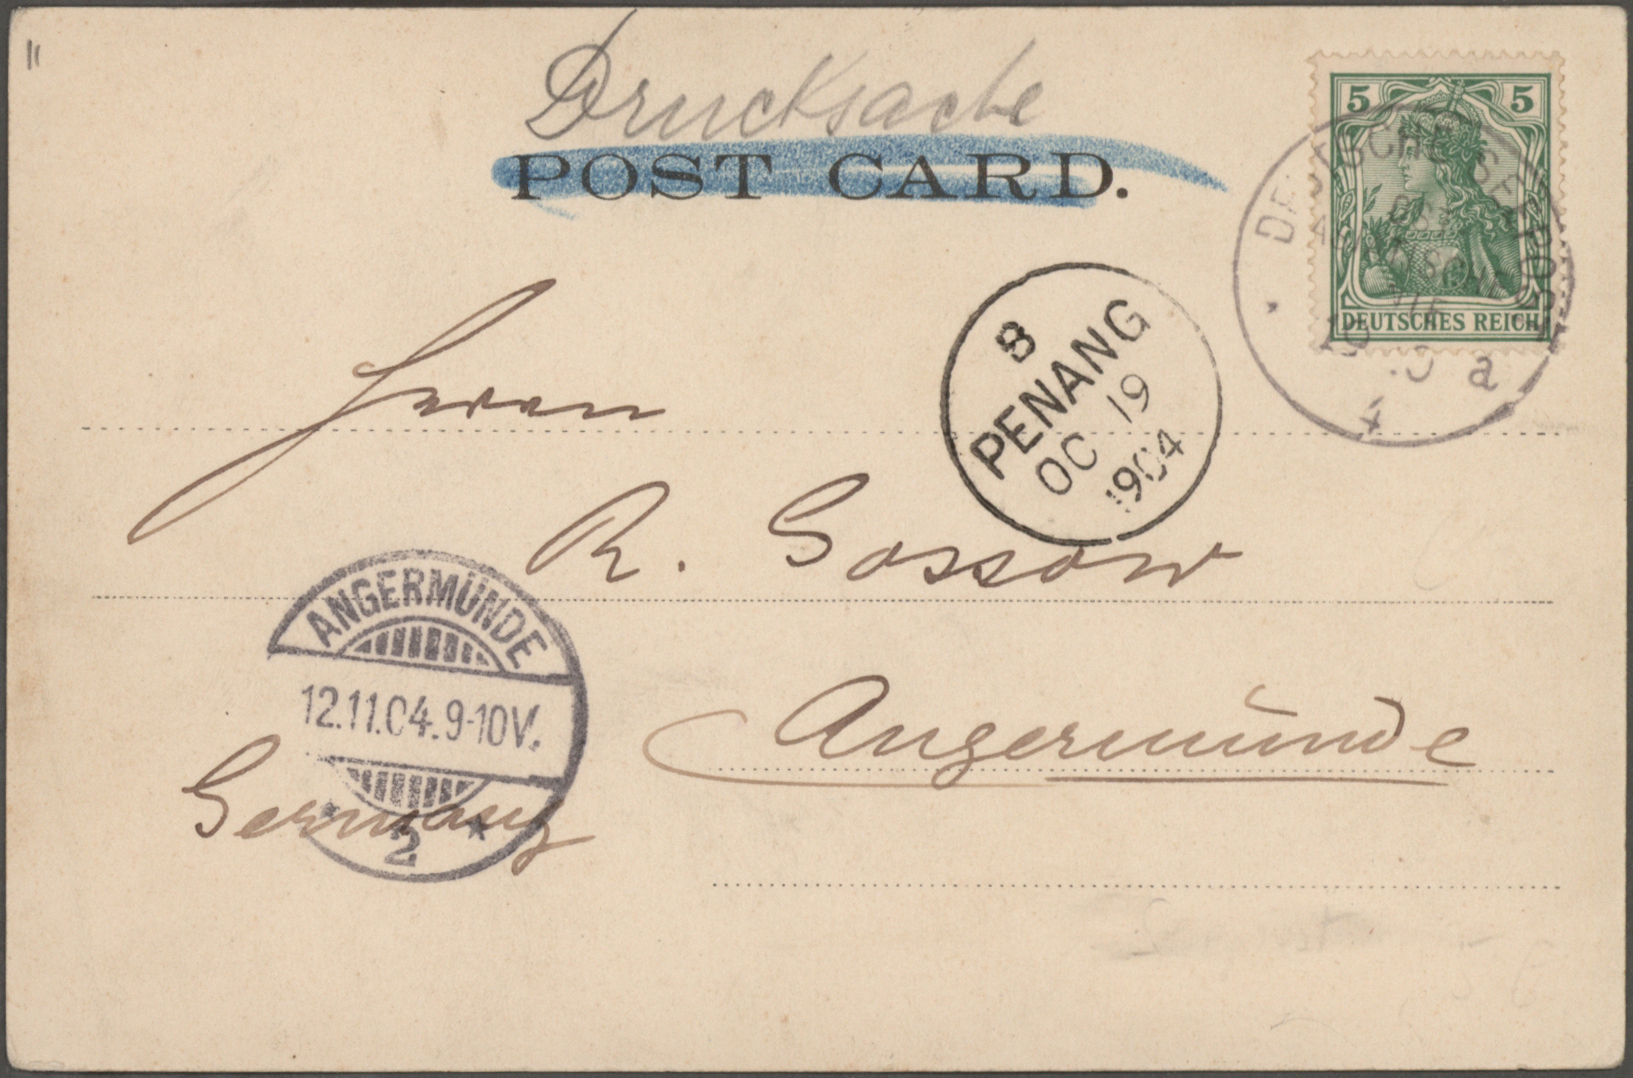 Drucksache
POST CARD.
5 5
DEUTSCHE SEEPOST
DEUTSCHES REICH
a
8
PENANG
OC 19
1904
Herrn
R. Gossow
ANGERMÜNDE
12.11.04.9-10V.
2
Angermünde
Germany